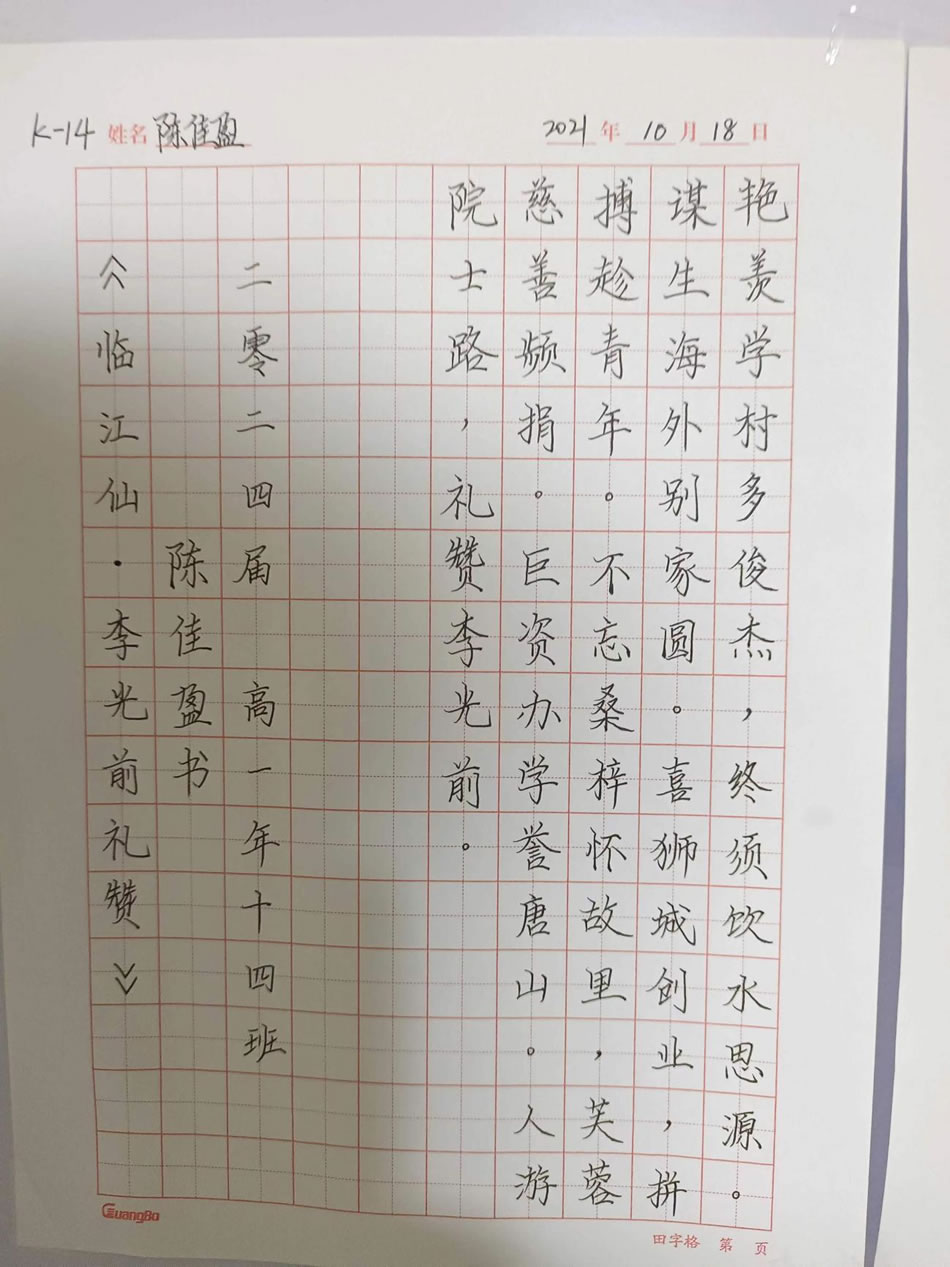 K-14 姓名 陈佳盈 2021年10月18日
艳羡学村多俊杰，终须饮水思源。
谋生海外别家圆。喜狮城创业，拼
搏趁青年。不忘桑梓怀故里，芙蓉
慈善频捐。巨资办学誉唐山。人游
院士路，礼赞李光前。
二零二四届 高一年十四班
陈佳盈书
《临江仙·李光前礼赞》
GuangBo
田字格 第 页